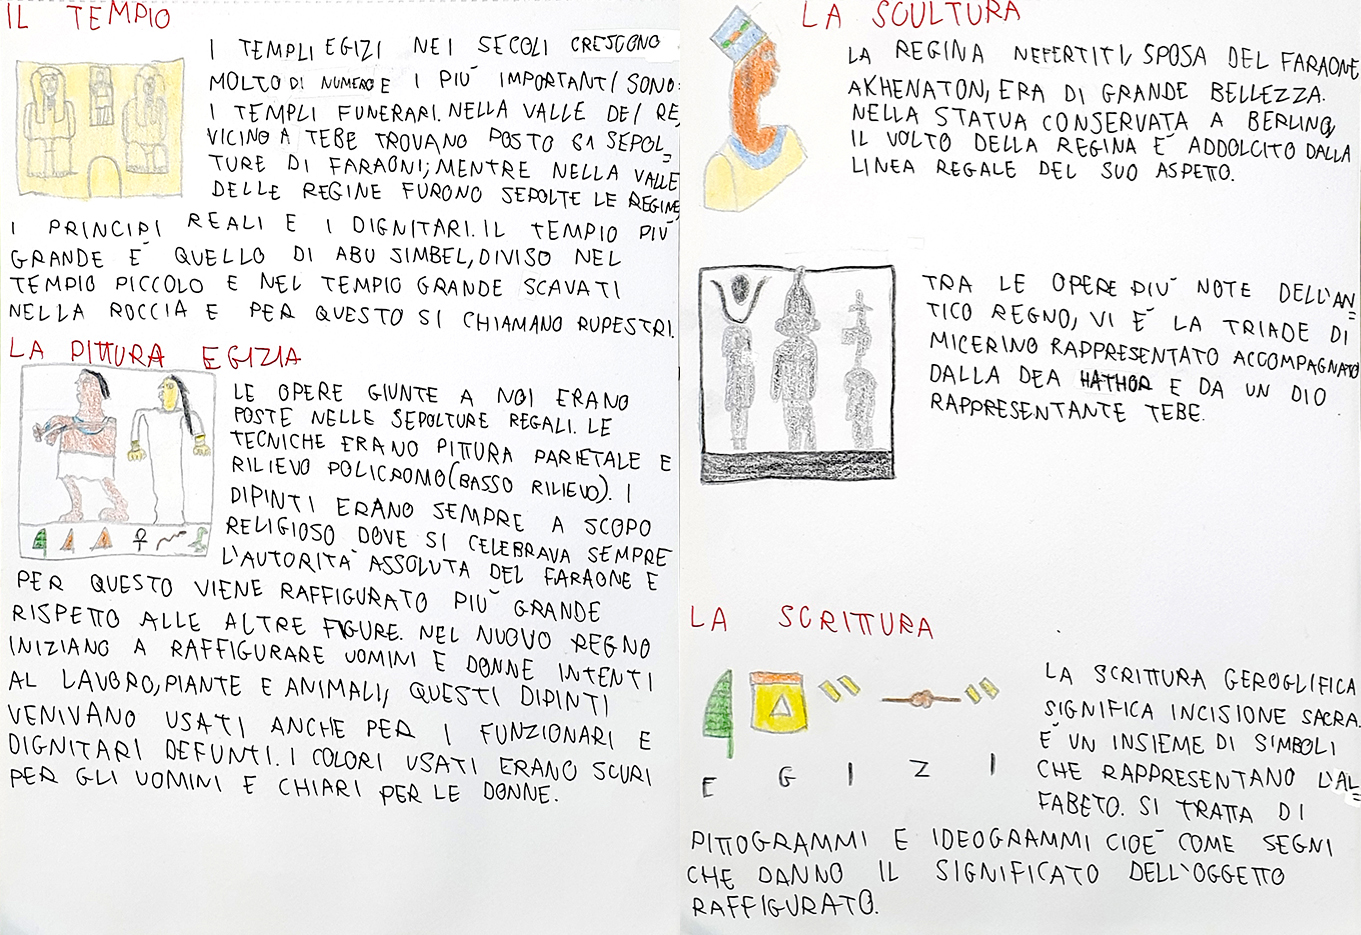 IL TEMPIO
I TEMPLI EGIZI NEI SECOLI CRESCONO
MOLTO DI NUMERO E I PIÙ IMPORTANTI SONO:
I TEMPLI FUNERARI. NELLA VALLE DEI RE,
VICINO A TEBE TROVANO POSTO 61 SEPOL=
TURE DI FARAONI; MENTRE NELLA VALLE
DELLE REGINE FURONO SEPOLTE LE REGINE,
I PRINCIPI REALI E I DIGNITARI. IL TEMPIO PIÙ
GRANDE È QUELLO DI ABU SIMBEL, DIVISO NEL
TEMPIO PICCOLO E NEL TEMPIO GRANDE SCAVATI
NELLA ROCCIA E PER QUESTO SI CHIAMANO RUPESTRI.
LA PITTURA EGIZIA
LE OPERE GIUNTE A NOI ERANO
POSTE NELLE SEPOLTURE REGALI. LE
TECNICHE ERANO PITTURA PARIETALE E
RILIEVO POLICROMO (BASSO RILIEVO). I
DIPINTI ERANO SEMPRE A SCOPO
RELIGIOSO DOVE SI CELEBRAVA SEMPRE
L'AUTORITÀ ASSOLUTA DEL FARAONE E
PER QUESTO VIENE RAFFIGURATO PIÙ GRANDE
RISPETTO ALLE ALTRE FIGURE. NEL NUOVO REGNO
INIZIANO A RAFFIGURARE UOMINI E DONNE INTENTI
AL LAVORO, PIANTE E ANIMALI, QUESTI DIPINTI
VENIVANO USATI ANCHE PER I FUNZIONARI E
DIGNITARI DEFUNTI. I COLORI USATI ERANO SCURI
PER GLI UOMINI E CHIARI PER LE DONNE.
LA SCULTURA
LA REGINA NEFERTITI, SPOSA DEL FARAONE
AKHENATON, ERA DI GRANDE BELLEZZA.
NELLA STATUA CONSERVATA A BERLINO,
IL VOLTO DELLA REGINA È ADDOLCITO DALLA
LINEA REGALE DEL SUO ASPETTO.
TRA LE OPERE PIÙ NOTE DELL'AN=
TICO REGNO, VI È LA TRIADE DI
MICERINO RAPPRESENTATO ACCOMPAGNATO
DALLA DEA HATHOR E DA UN DIO
RAPPRESENTANTE TEBE.
LA SCRITTURA
E G I Z I
LA SCRITTURA GEROGLIFICA
SIGNIFICA INCISIONE SACRA.
È UN INSIEME DI SIMBOLI
CHE RAPPRESENTANO L'AL=
FABETO. SI TRATTA DI
PITTOGRAMMI E IDEOGRAMMI CIOÈ COME SEGNI
CHE DANNO IL SIGNIFICATO DELL'OGGETTO
RAFFIGURATO.